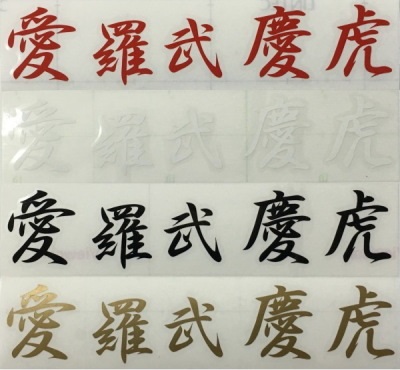 愛羅武慶虎
愛羅武慶虎
愛羅武慶虎
愛羅武慶虎